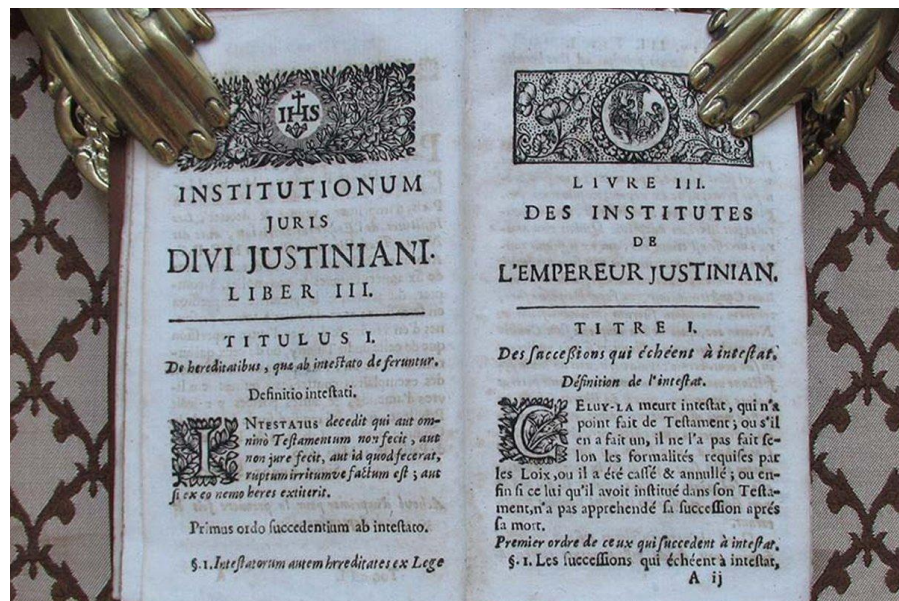 IHS
INSTITUTIONUM
JURIS
DIVI JUSTINIANI.
LIBER III.
TITULUS I.
De hereditatibus, quæ ab inteſtato deferuntur.
Definitio inteſtati.
INTESTATUS decedit qui aut om-
nino Teſtamentum non fecit, aut
non jure fecit, aut id quod fecerat,
ruptum irritumve factum eſt ; aut
ſi ex eo nemo heres extiterit.
Primus ordo ſuccedentium ab inteſtato.
§. 1. Inteſtatorum autem hereditates ex Lege
LIVRE III.
DES INSTITUTES
DE
L'EMPEREUR JUSTINIAN.
TITRE I.
Des ſucceßions qui échéent à inteſtat.
Définition de l'inteſtat.
CELUY-LA meurt inteſtat, qui n'a
point fait de Teſtament ; ou s'il
en a fait un, il ne l'a pas fait ſe-
lon les formalités requiſes par
les Loix, ou il a été caſſé & annullé ; ou en-
fin ſi ce lui qu'il avoit inſtitué dans ſon Teſta-
ment, n'a pas apprehendé ſa ſucceſſion aprés
ſa mort.
Premier ordre de ceux qui ſuccedent à inteſtat.
§. 1. Les ſucceſſions qui échéent à inteſtat,
A ij